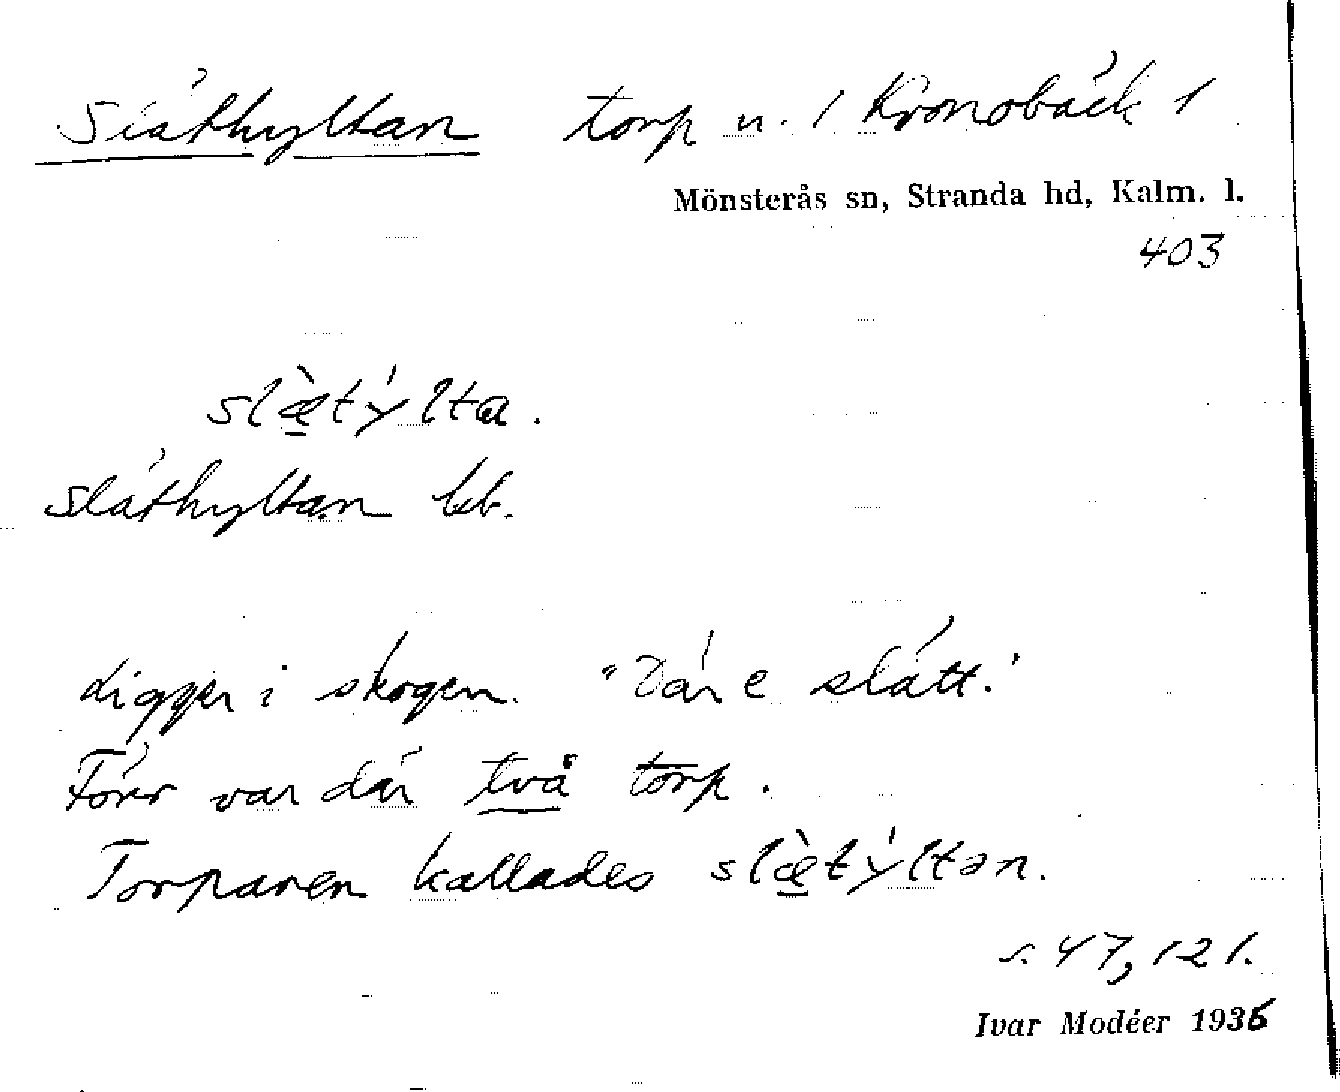 Släthyltan torp u. / Kronobäck 1
Mönsterås sn, Stranda hd, Kalm. l.
403
slæ̀tý lta.
släthyltan bb.
Ligger i skogen. "Där e slätt."
Förr var där två torp.
Torparen kallades slæ̀týltən.
s. 47, 121.
Ivar Modéer 1936